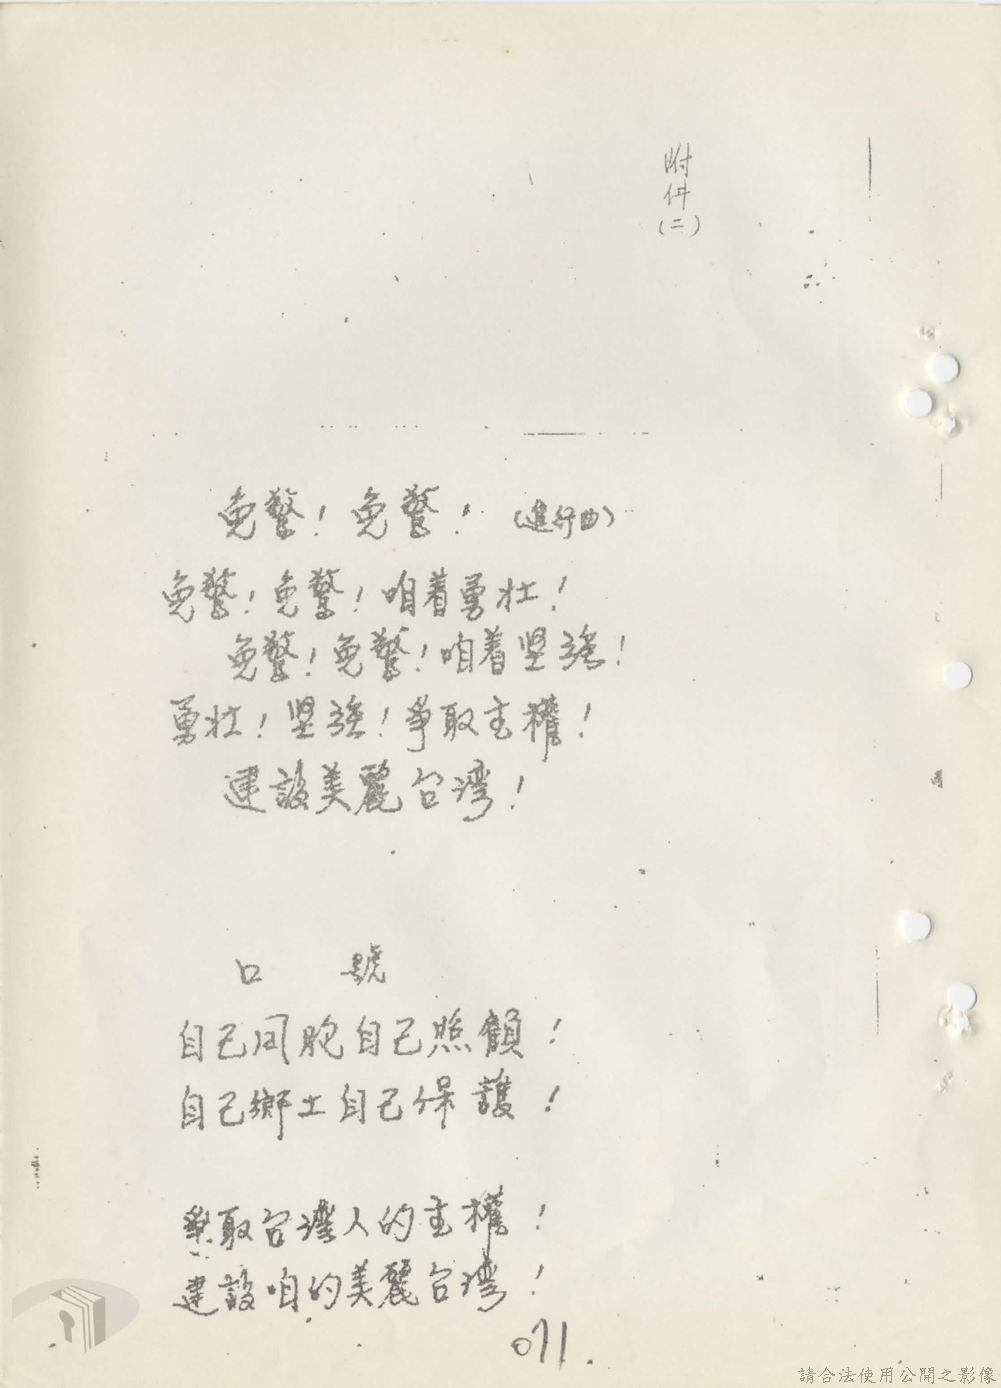 附件
(二)
免驚！免驚！（進行曲）
免驚！免驚！咱着勇壯！
免驚！免驚！咱着坚强！
勇壯！坚强！爭取主權！
建設美麗台湾！
口號
自己同胞自己照顧！
自己鄉土自己保護！
爭取台湾人的主權！
建設咱的美麗台湾！
071.
請合法使用公開之影像